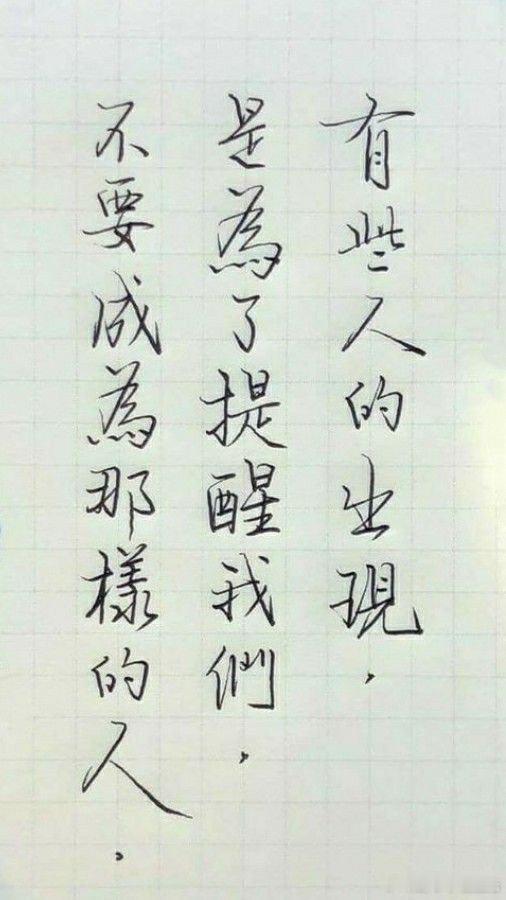 有些人的出現，
是為了提醒我們，
不要成為那樣的人。